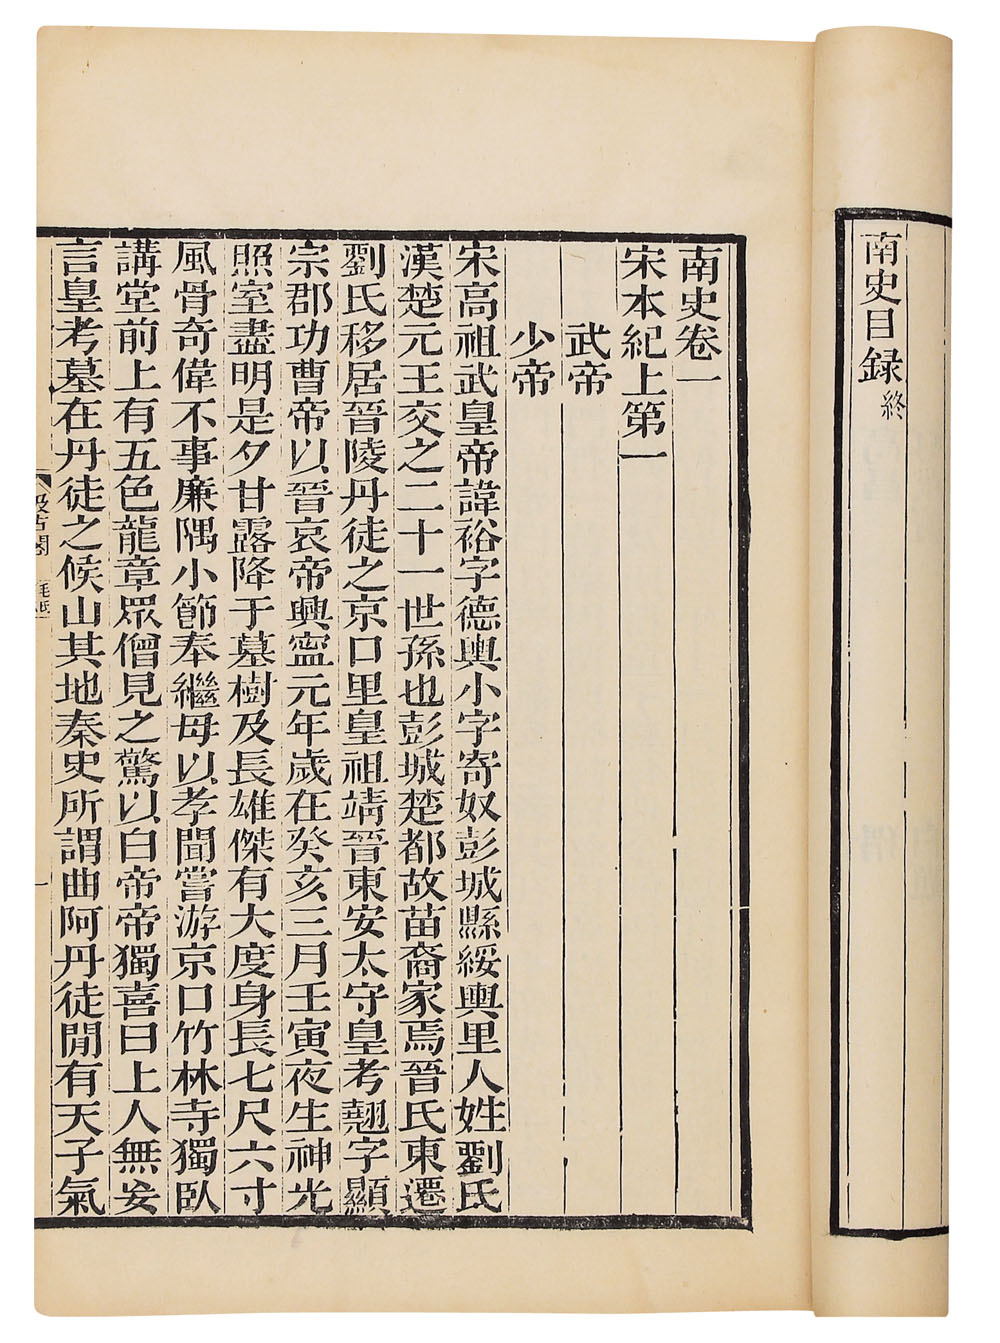 南史目録終
南史卷一
宋本紀上第一
武帝
少帝
宋高祖武皇帝諱裕字德輿小字寄奴彭城縣綏輿里人姓劉氏
漢楚元王交之二十一世孫也彭城楚都故苗裔家焉晉氏東遷
劉氏移居晉陵丹徒之京口里皇祖靖晉東安太守皇考翹字顯
宗郡功曹帝以晉哀帝興寧元年歲在癸亥三月壬寅夜生神光
照室盡明是夕甘露降于墓樹及長雄傑有大度身長七尺六寸
風骨奇偉不事廉隅小節奉繼母以孝聞嘗游京口竹林寺獨臥
講堂前上有五色龍章眾僧見之驚以白帝帝獨喜曰上人無妄
言皇考墓在丹徒之候山其地秦史所謂曲阿丹徒間有天子氣
一